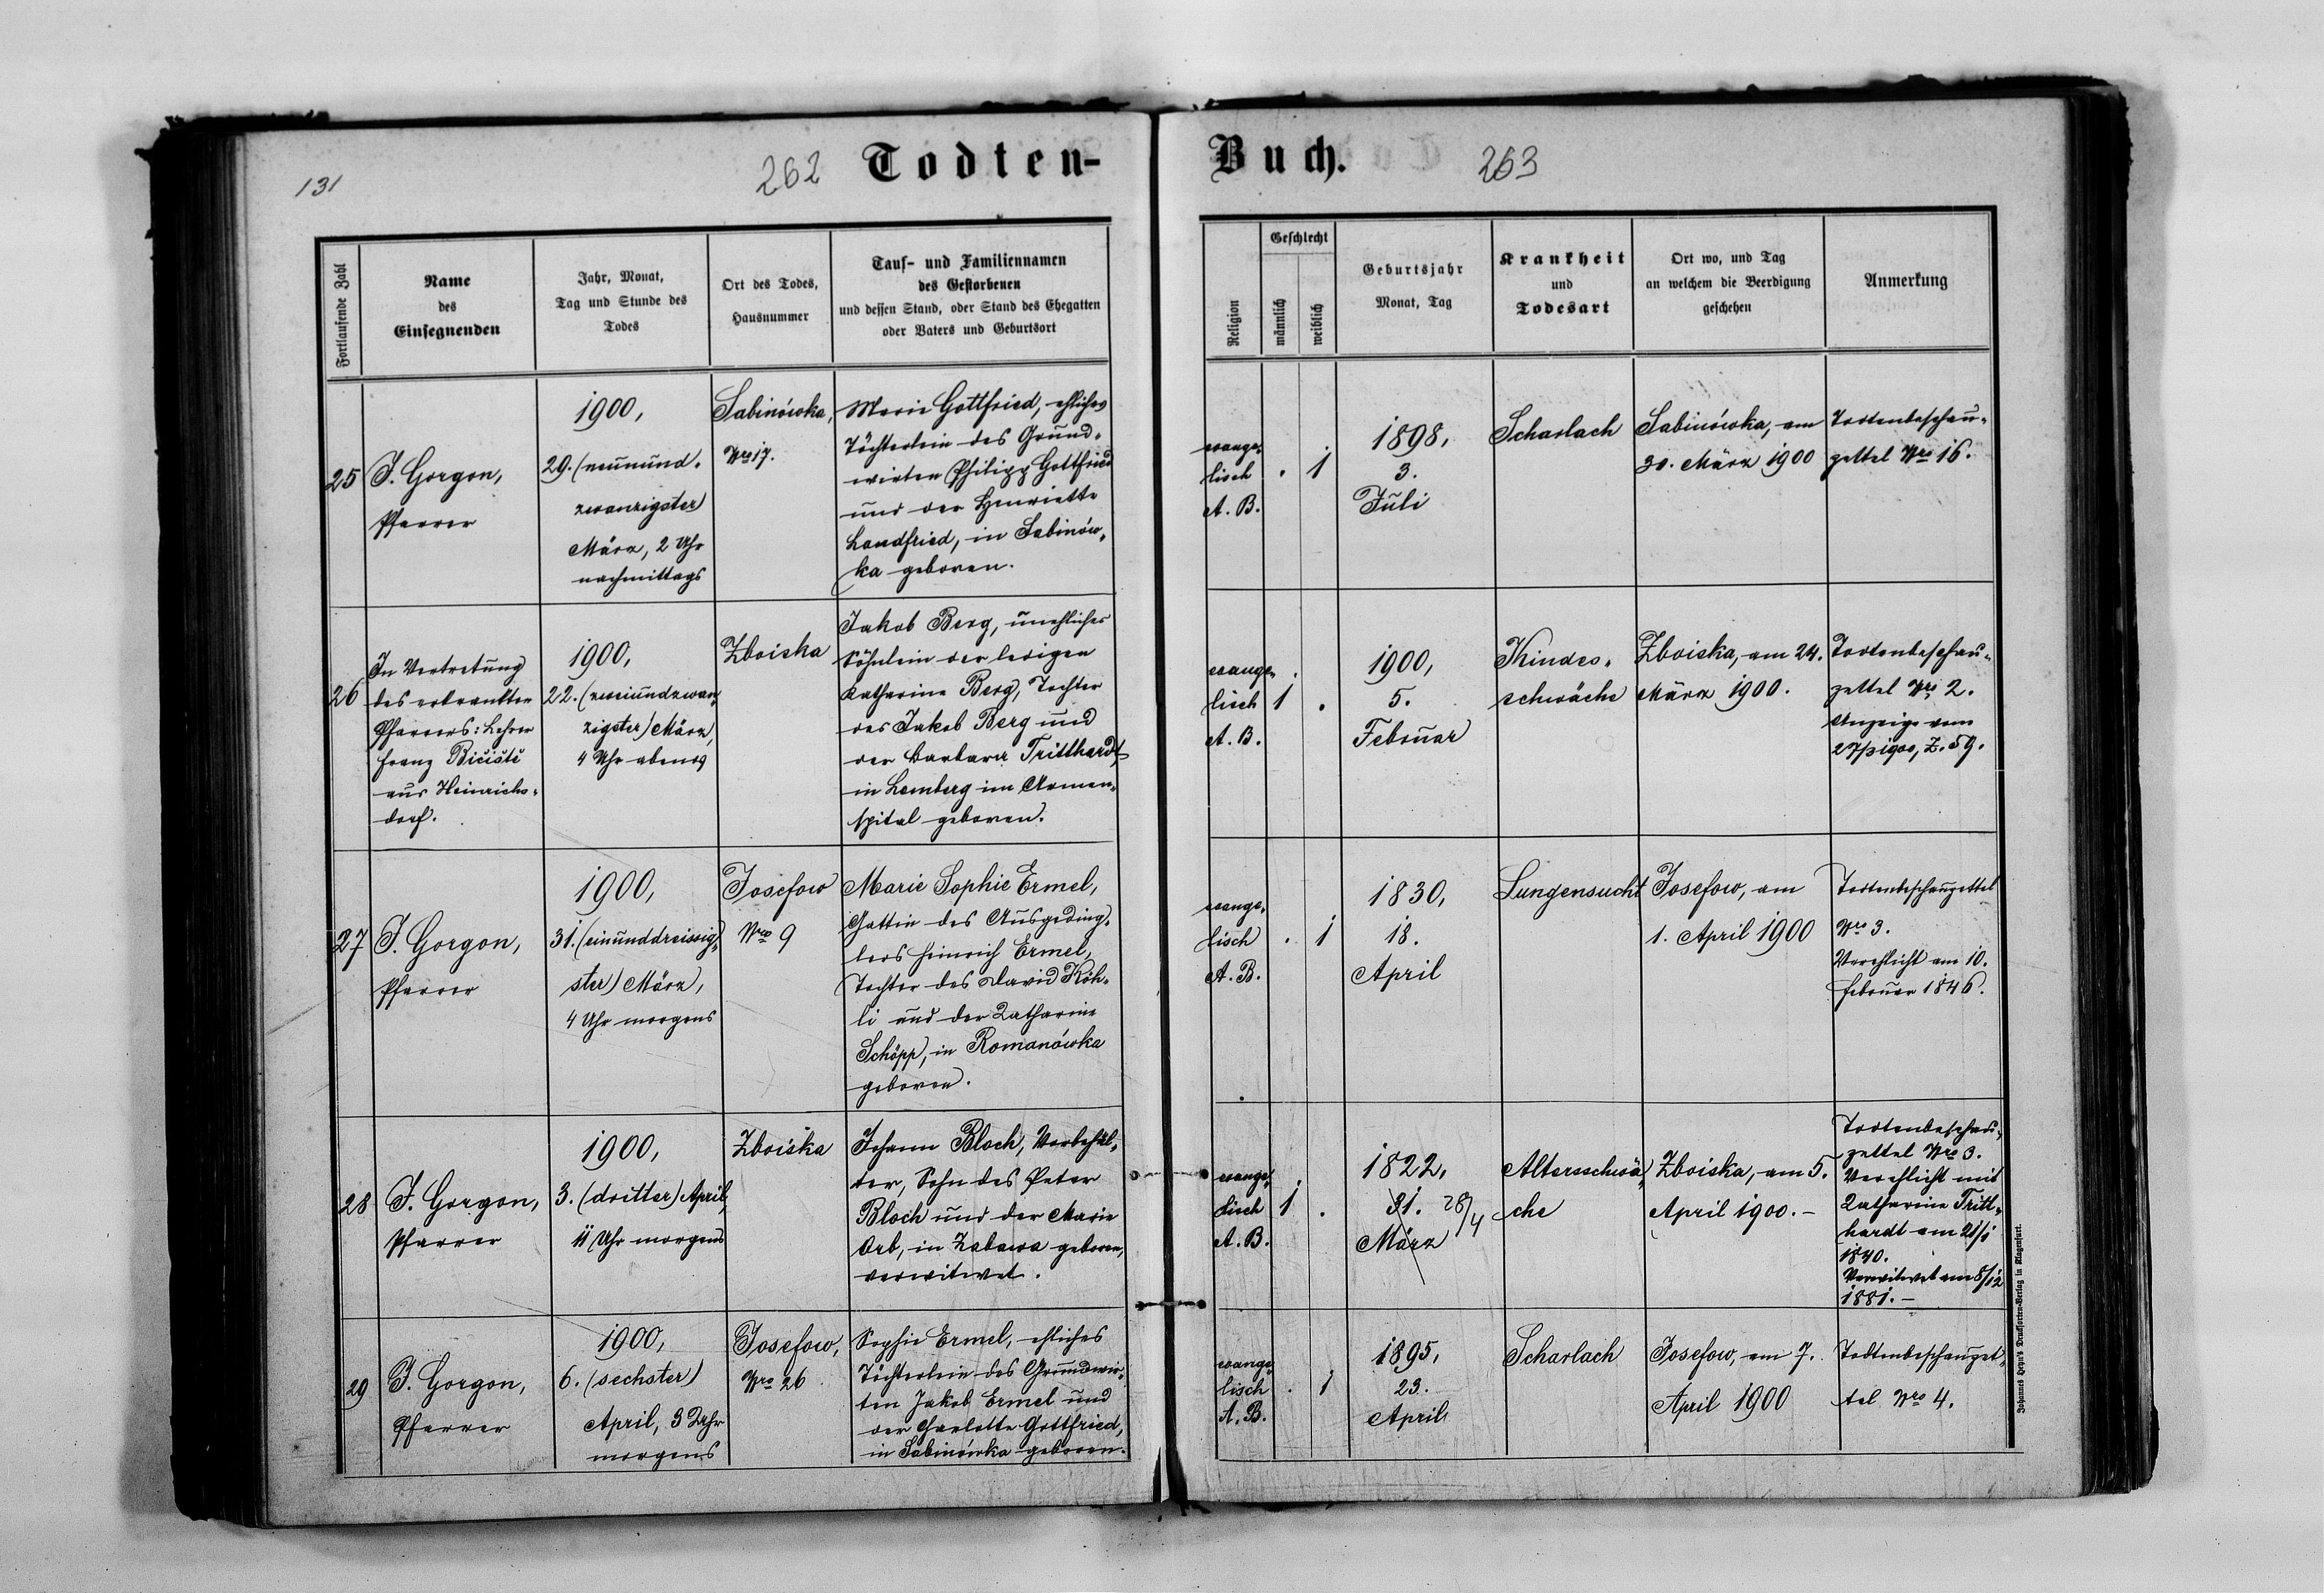 131
262
Todten-
Buch.
263
Fortlaufende Zahl
Name
des
Einsegnenden
Jahr, Monat,
Tag und Stunde des
Todes
Ort des Todes,
Hausnummer
Tauf- und Familiennamen
des Gestorbenen
und dessen Stand, oder Stand des Ehegatten
oder Vaters und Geburtsort
Religion
Geschlecht
männlich
weiblich
Geburtsjahr
Monat, Tag
Krankheit
und
Todesart
Ort wo, und Tag
an welchem die Beerdigung
geschehen
Anmerkung
25
J. Gorgon,
Pfarrer
1900,
29. (neunund-
zwanzigster)
März, 2 Uhr
nachmittags
Sabinówka,
Nro 17.
Marie Gottfried, ehliches
Töchterlein des Grund-
wirten Philipp Gottfried
und der Henriette
Landfried, in Sabinów-
ka geboren.
evange-
lisch
A. B.
. 1
1898,
3.
Juli
Scharlach
Sabinówka, am
30. März 1900
Todtenbeschau-
zettel Nro 16.
26
In Vertretung
des erkrankten
Pfarrers: Lehrer
Franz
aus Heinrichs-
dorf.
1900,
22. (zweiundzwan-
zigster) März,
4 Uhr abends
Zboiska
Jakob Berg, unehliches
Söhnlein der ledigen
Katharina Berg, Tochter
des Jakob Berg und
der Barbara Tritthardt,
in Lemberg im Armen-
spital geboren.
evange-
lisch
A. B.
1 .
1900,
5.
Februar
Kindes-
schwäche
Zboiska, am 24.
März 1900.
Todtenbeschau-
zettel Nro 2.
Anzeige vom
27/3 1900, Z. 59.
27
J. Gorgon,
Pfarrer
1900,
31. (einunddreissig-
ster) März,
4 Uhr morgens
Josefow
Nro 9
Marie Sophie Ermel,
Gattin des Ausgeding-
lers Heinrich Ermel,
Tochter des David Köh-
li und der Katharina
Schöpp, in Romanówka
geboren.
evange-
lisch
A. B.
. 1
1830,
18.
April
Lungensucht
Josefow, am
1. April 1900
Todtenbeschauzettel
Nro 3.
Verehlicht am 10.
Februar 1846.
28
J. Gorgon,
Pfarrer
1900,
3. (dritter) April,
11 Uhr morgens
Zboiska
Johann Bloch, Vorbehäl-
ter, Sohn des Peter
Bloch und der Marie
Orb, in Zabawa geboren,
verwitwet.
evange-
lisch
A. B.
1 .
1822,
31. 28/4
März
Altersschwä-
che
Zboiska, am 5.
April 1900.-
Todtenbeschau-
zettel Nro 3.
Verehlicht mit
Katharina Tritt-
hardt am 21/1
1840.
Verwitwet am 8/12
1881.-
29
J. Gorgon,
Pfarrer
1900,
6. (sechster)
April, 3 Uhr
morgens
Josefow,
Nro 26
Sophie Ermel, ehliches
Töchterlein des Grundwir-
ten Jakob Ermel und
der Charlotte Gottfried,
in Sabinówka geboren.
evange-
lisch
A. B.
. 1
1895,
23.
April
Scharlach
Josefow, am 7.
April 1900
Todtenbeschauzet-
tel Nro 4.
Johannes Heyn's Drucksorten-Verlag in Klagenfurt.